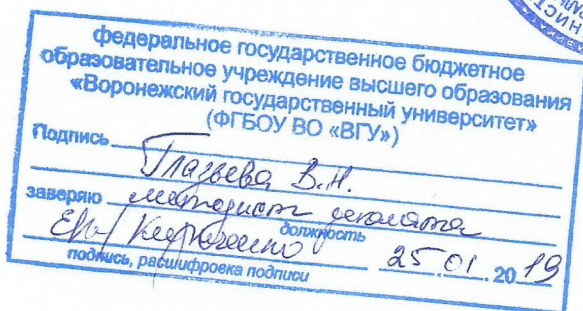 федеральное государственное бюджетное
образовательное учреждение высшего образования
«Воронежский государственный университет»
(ФГБОУ ВО «ВГУ»)
Подпись Глазьева В.Н.
заверяю методист деканата
должность
подпись, расшифровка подписи 25 01 2019